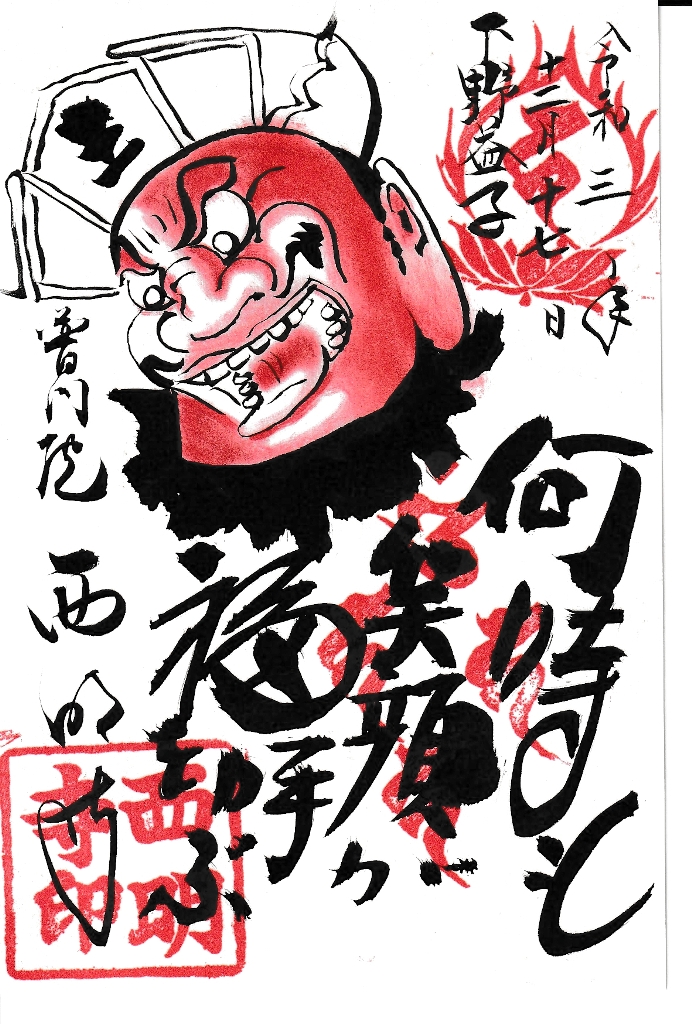 令和三年
十二月十七日
下野益子
王
何時も
笑顔が
福
ぶ
普門院
西明寺
西明
寺印